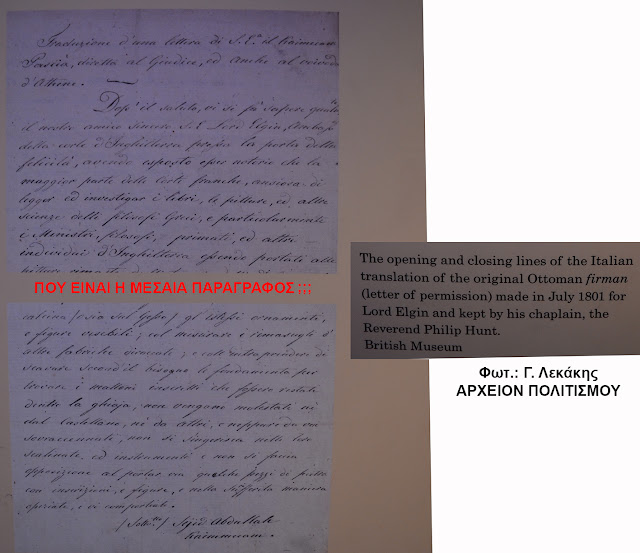 Traduzione d'una lettera di S. E. il Kaimmacam
Pascià, diretta al Giudice, ed anche al
d'Atene.
Dopo il saluto, vi si fà sapere
il nostro amico sincero S. E. Lord Elgin,
della corte d'Inghilterra presso la porta della
felicità, avendo esposto esser notorio che la
maggior parte delle Corti franche, ansiose di
legger ed investigar i libri, le pitture, ed altre
scienze delle filosofi Greci, e particolarmente
i Ministri, filosofi, primati, ed altri
individui d'Inghilterra essendo portati alle
pitture rimaste
ΠΟΥ ΕΙΝΑΙ Η ΜΕΣΑΙΑ ΠΑΡΑΓΡΑΦΟΣ ;;;
calcina (osia sul gesso) gl'istessi ornamenti,
e figure visibili; nel misurare i rimasugli d'
altre fabriche diroccate; e nell'intraprendere di
scavare secondo il bisogno le fondamenta per
trovare i mattoni inscritti che fossero restati
dentro la ghiaja, non vengano molestati nè
dal Castellano, nè da altri, e neppure da voi
sovraccennati, non si ingerisca nelle loro
scalinate, ed instrumenti e non si faccia
opposizione al portar via qualche pezzi di pietra
con inscrizioni, e figure, e nella suddetta maniera
operiate, e vi comportiate.
Sejid Abdullah
Kaimmacam
The opening and closing lines of the Italian
translation of the original Ottoman firman
(letter of permission) made in July 1801 for
Lord Elgin and kept by his chaplain, the
Reverend Philip Hunt.
British Museum
Φωτ.: Γ. Λεκάκης
ΑΡΧΕΙΟΝ ΠΟΛΙΤΙΣΜΟΥ